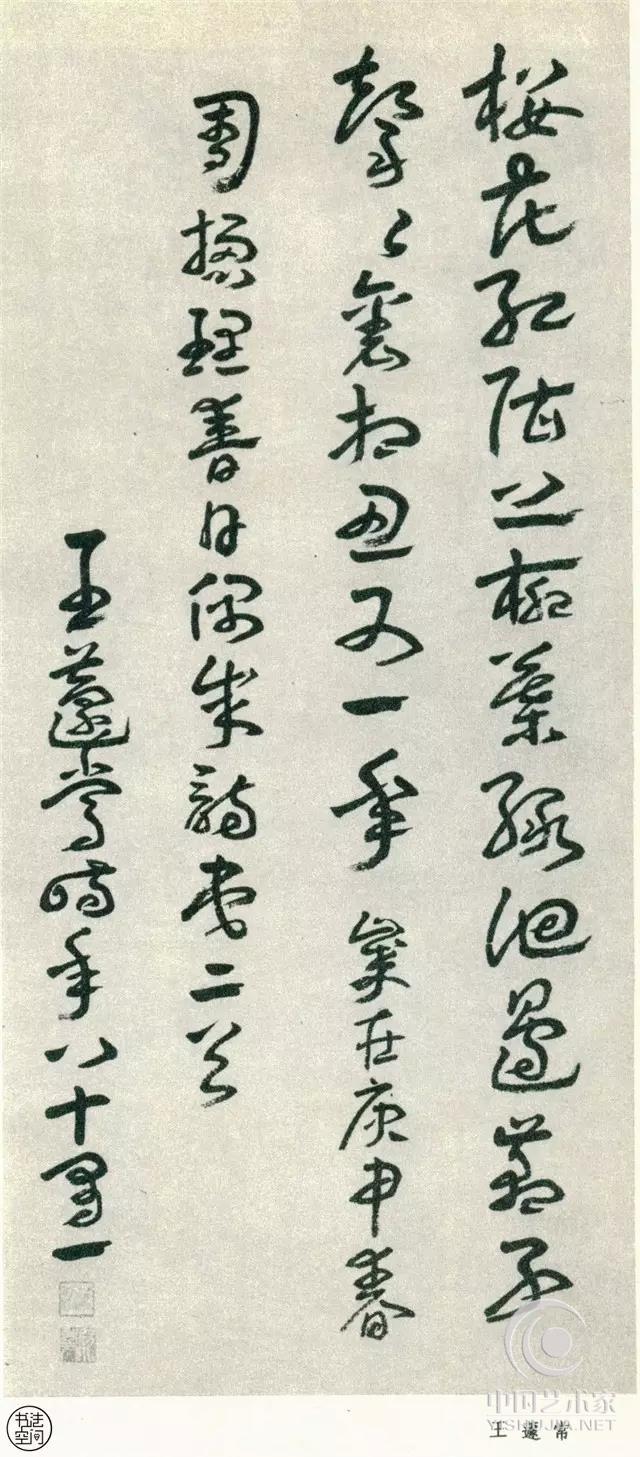 樱花红陌上柳叶绿池边燕子
声々里相思又一年 岁在庚申春
周总理春日偶成诗弟二首
王蘧常时年八十一
中国艺术家
YISHUJIA.NET
书法空间
王蘧常